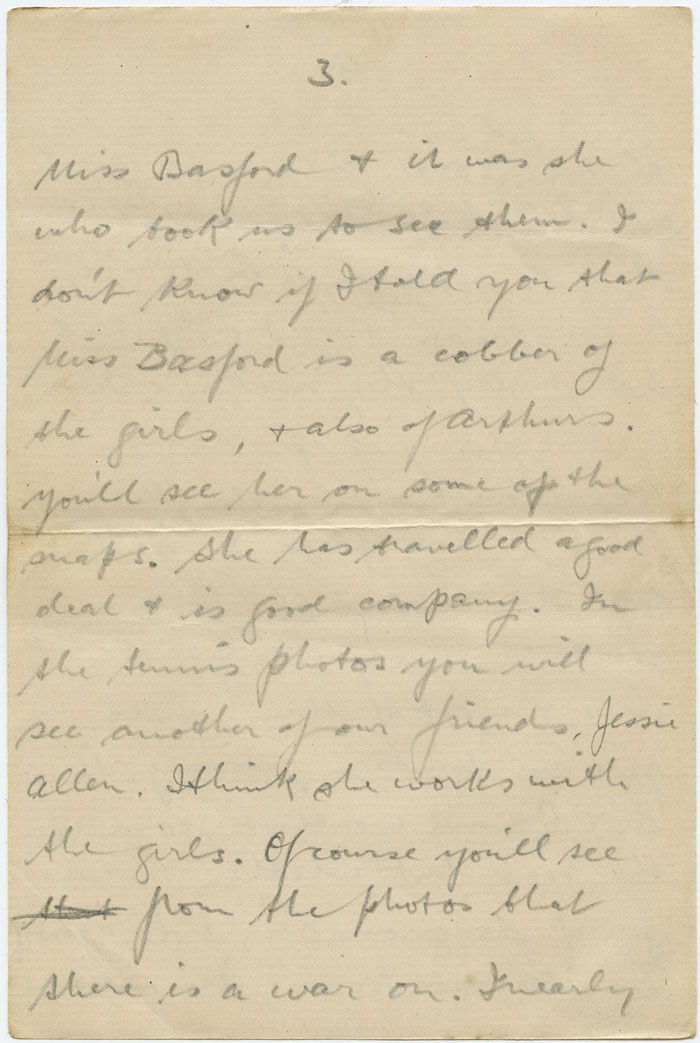 3.
Miss Basford & it was she
who took us to see them. I
don't know if I told you that
Miss Basford is a cobber of
the girls, & also of Arthurs.
you'll see her on some of the
snaps. She has travelled a good
deal & is good company. In
the tennis photos you will
see another of our friends, Jessie
Allen. I think she works with
the girls. Of course you'll see
that from the photos that
there is a war on. I nearly